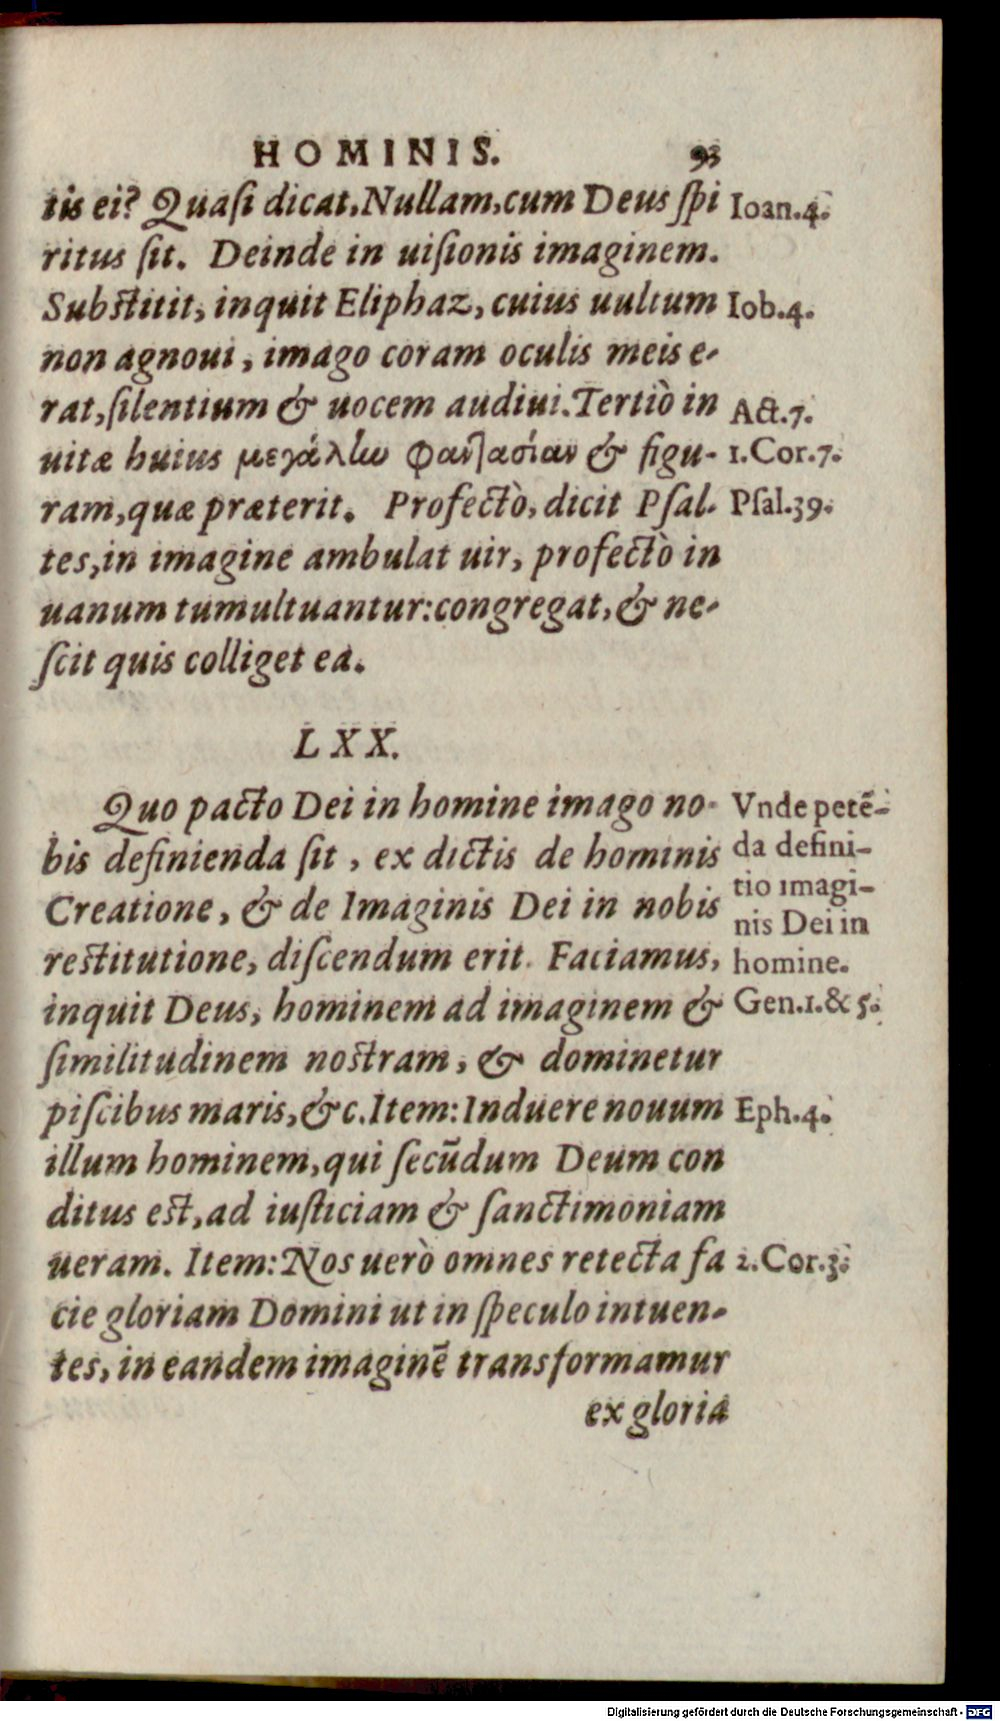 HOMINIS. 93
tis ei? Quaſi dicat, Nullam, cum Deus ſpi
ritus ſit. Deinde in uiſionis imaginem.
Subſtitit, inquit Eliphaz, cuius uultum
non agnoui, imago coram oculis meis e-
rat, ſilentium & uocem audiui. Tertiò in
uitæ huius μεγάλίω φαντασίαν & figu-
ram, quæ præterit. Profectò, dicit Pſal-
tes, in imagine ambulat uir, profectò in
uanum tumultuantur: congregat, & ne-
ſcit quis colliget ea.
Ioan.4.
Iob.4.
Act.7.
1.Cor.7.
Pſal.39.
LXX.
Quo pacto Dei in homine imago no-
bis definienda ſit, ex dictis de hominis
Creatione, & de Imaginis Dei in nobis
reſtitutione, diſcendum erit. Faciamus,
inquit Deus, hominem ad imaginem &
ſimilitudinem noſtram, & dominetur
piſcibus maris, &c. Item: Induere nouum
illum hominem, qui ſecūdum Deum con
ditus eſt, ad iuſticiam & ſanctimoniam
ueram. Item: Nos uerò omnes retecta fa
cie gloriam Domini ut in ſpeculo intuen-
tes, in eandem imaginē transformamur
ex gloria
Vnde petē-
da defini-
tio imagi-
nis Dei in
homine.
Gen.1.& 5.
Eph.4.
2.Cor.3.
Digitalisierung gefördert durch die Deutsche Forschungsgemeinschaft - DFG